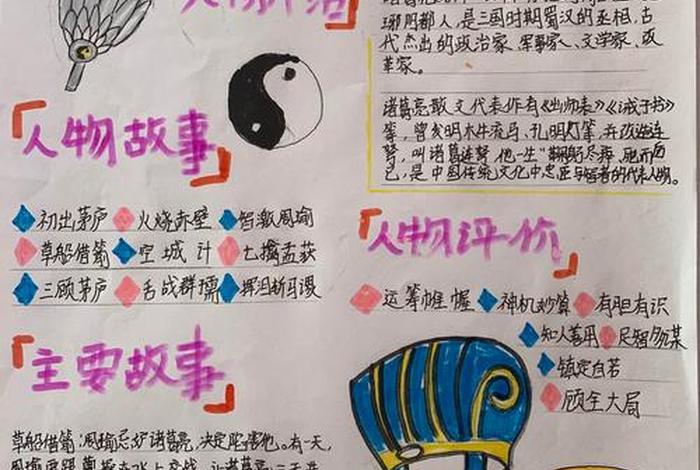 瑯琊郡人,是三国时期蜀汉的丞相,古
代杰出的政治家、军事家、文学家、改
革家。
诸葛亮散文代表作有《出师表》《诫子书》
等,曾发明木牛流马、孔明灯等,并改造连
弩,叫诸葛连弩,他一生"鞠躬尽瘁,死而后
已,是中国传统文化中忠臣与智者的代表人物。
人物故事
初出茅庐 火烧赤壁 智激周瑜
草船借箭 空城计 七擒孟获
三顾茅庐 舌战群儒 挥泪斩马谡
人物评价
运筹帷幄 神机妙算 有胆有识
知人善用 足智多谋
镇定自若
顾全大局
主要故事
草船借箭:周瑜忌妒诸葛亮,决定陷害他。有一天,